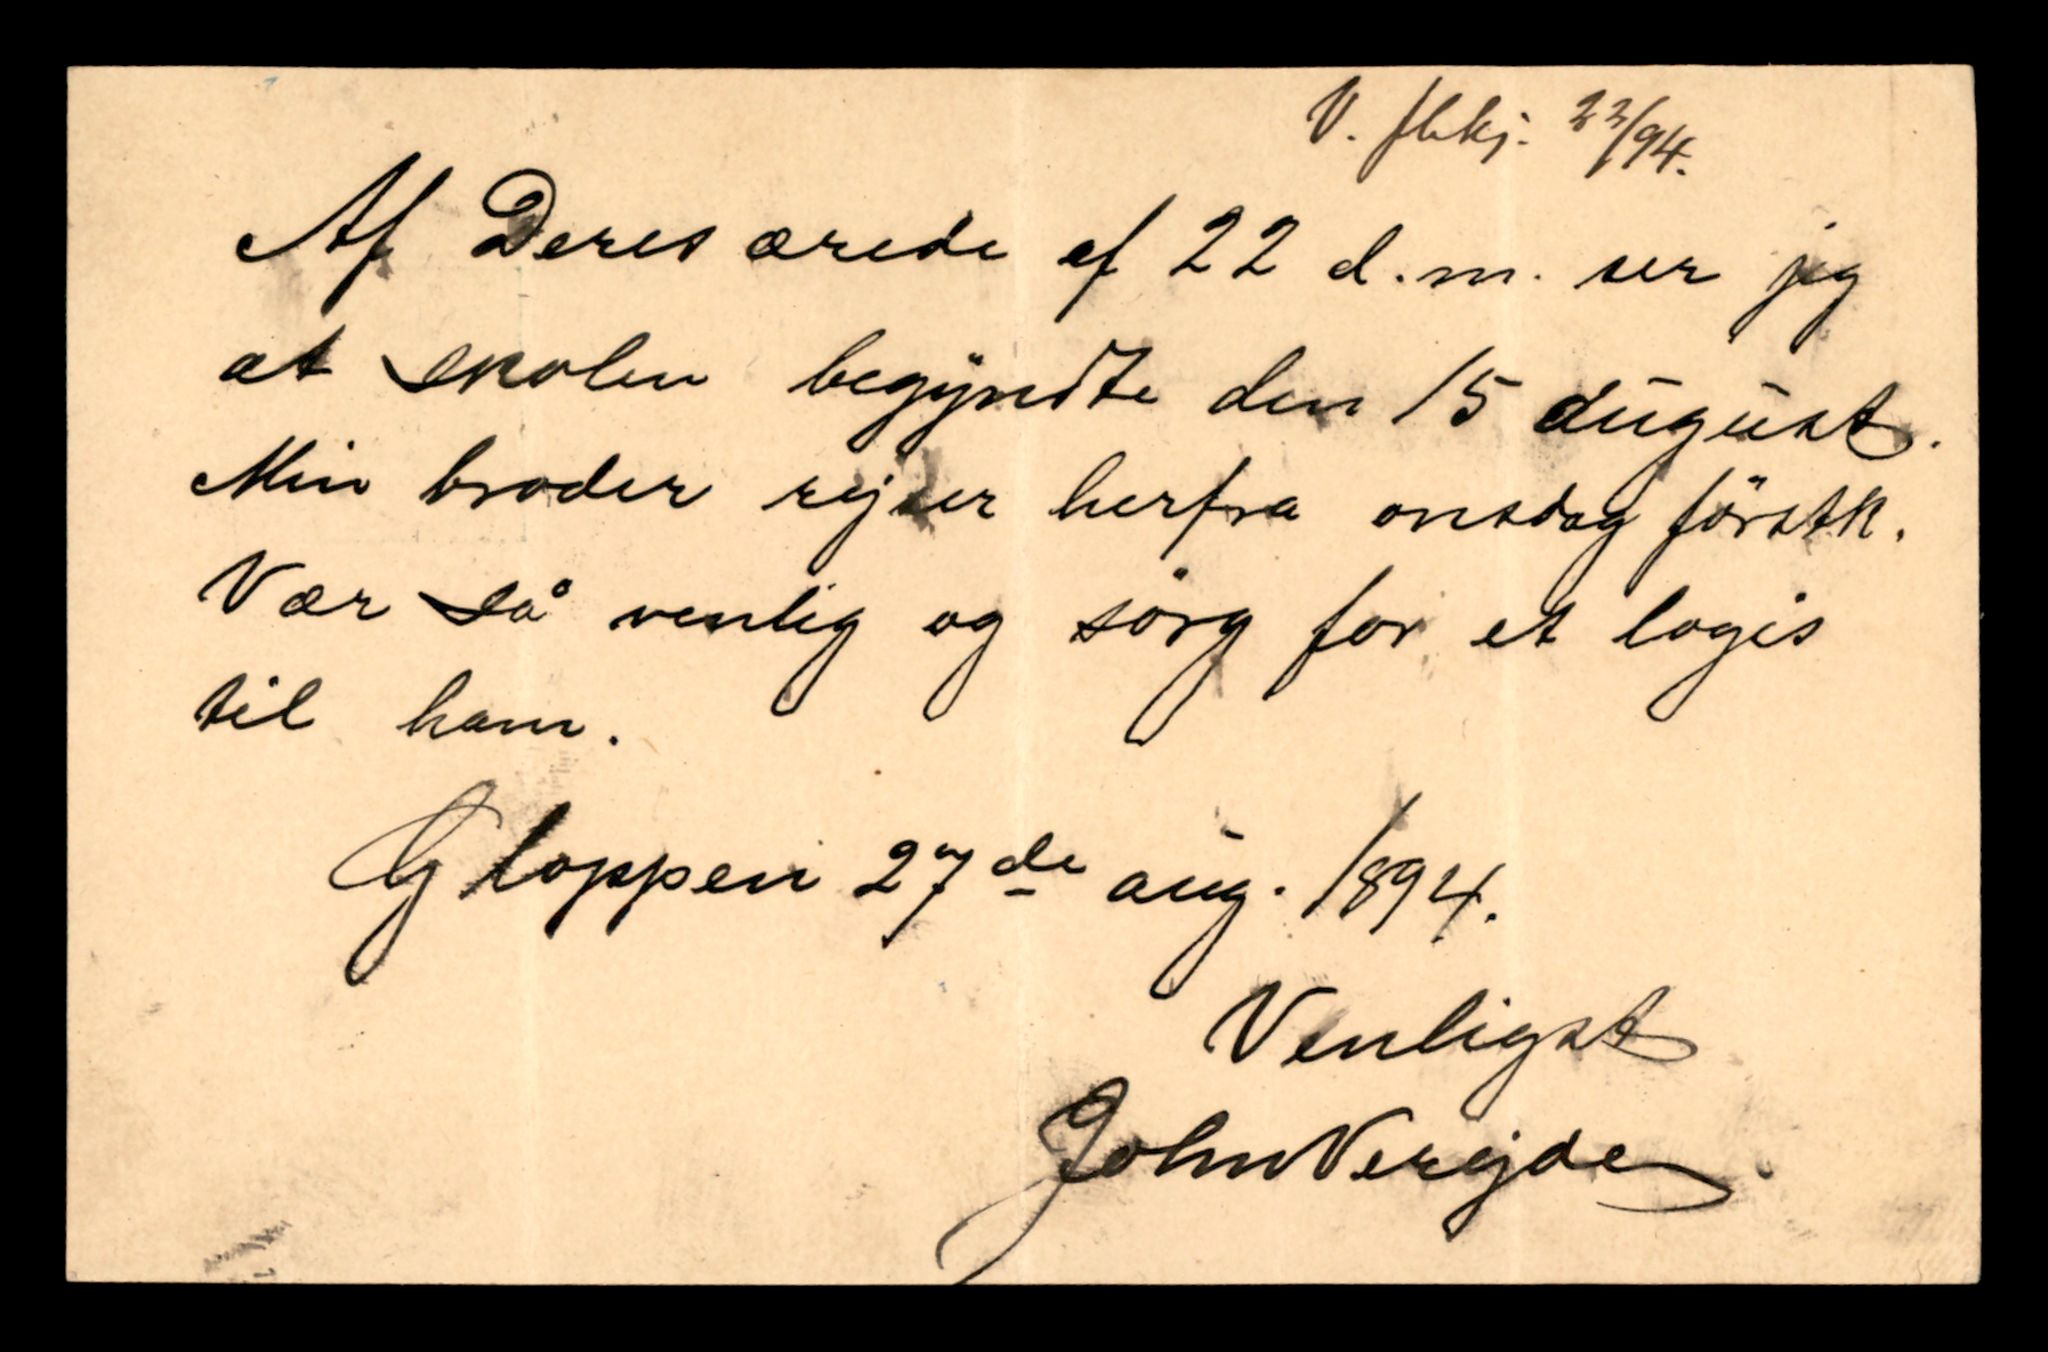 Af Deres ærede af 22 d.m. ser jeg
at skolen begÿndte den 15 aŭgŭst.
Min broder rejser herfra onsdag förstk.
Vær så venlig og sörg for et logis
til ham.
Gloppen 27de aŭg. 1894.
Venligst
John Verejde